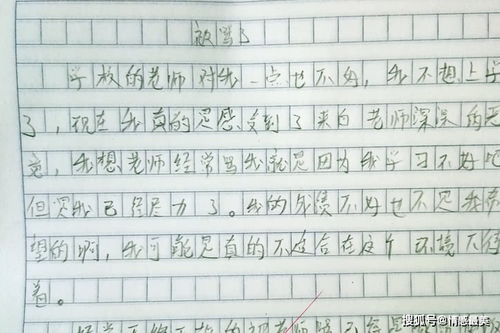 被骂了
学校的老师对我一点也不好，我不想上学
了，现在我真的是感受到了来自老师深深的恶
意，我想老师经常骂我就是因为我学习不好吧
但是我已经尽力了。我的成绩不好也不是我希
望的啊，我可能是真的不适合在这个环境下待
着。
搜狐号@情感最美